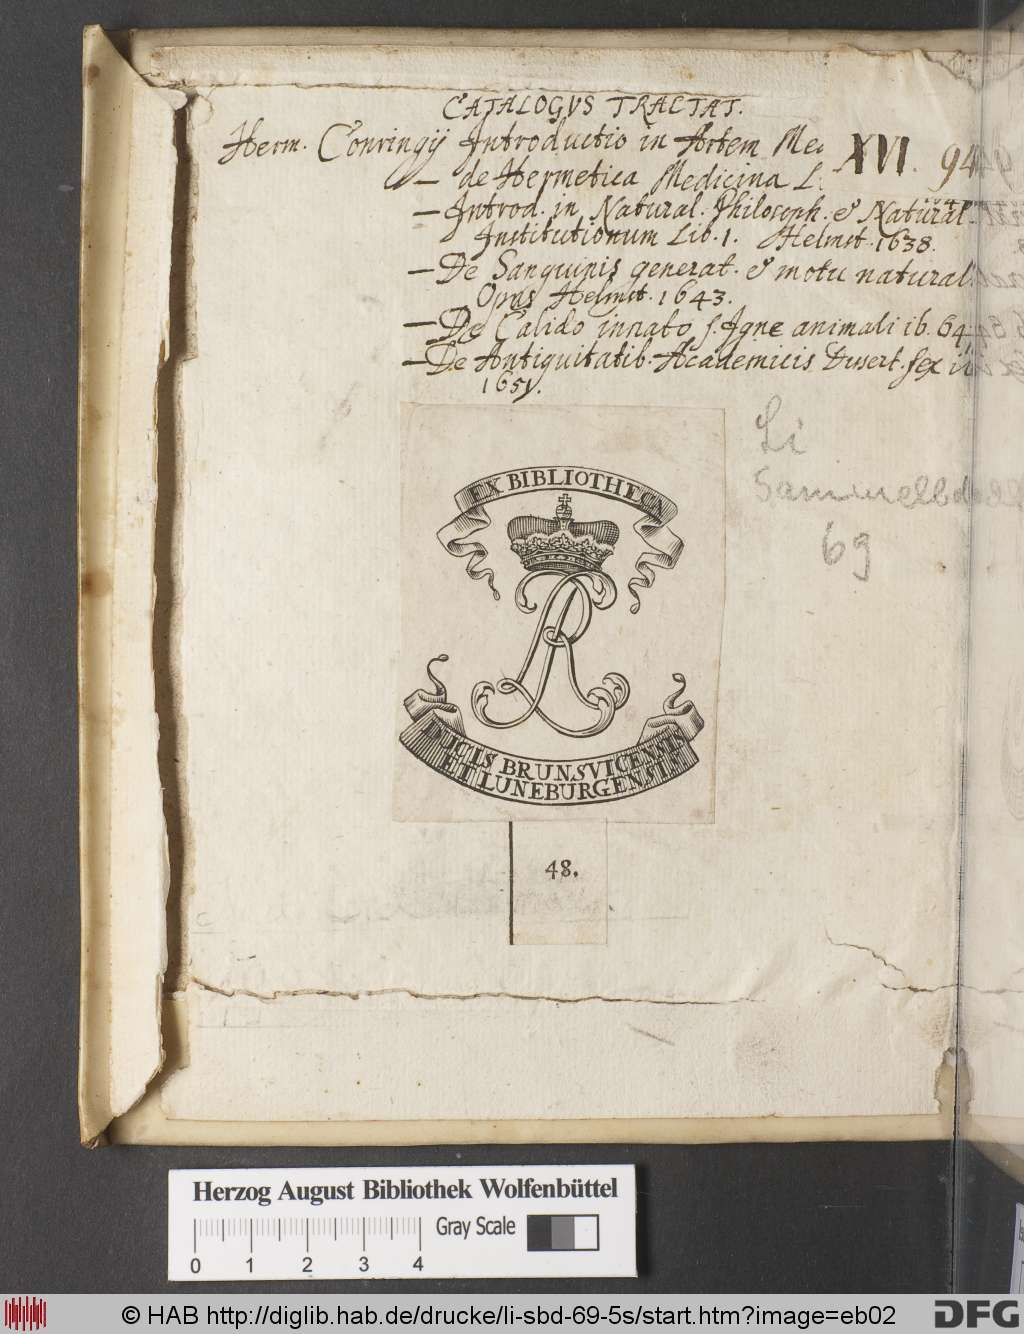 CATALOGVS TRACTAT.
Herm. Conringij Introductio in Artem Med
XVI. 94
— de Hermetica Medicina L.
— Introd. in Natural. Philosoph. & Natural.
Institutionum Lib. 1. Helmst. 1638.
— De Sanguinis generat. & motu natural.
Opus Helmst. 1643.
— De Calido innato s. Igne animali ib. 64
— De Antiquitatib. Academicis Dissert. sex
1651.
Li
Sammelbd
69
EX BIBLIOTHECA
DUCIS BRUNSVICENSIS
ET LUNEBURGENSIS
48.
Herzog August Bibliothek Wolfenbüttel
Gray Scale
0 1 2 3 4
© HAB http://diglib.hab.de/drucke/li-sbd-69-5s/start.htm?image=eb02
DFG